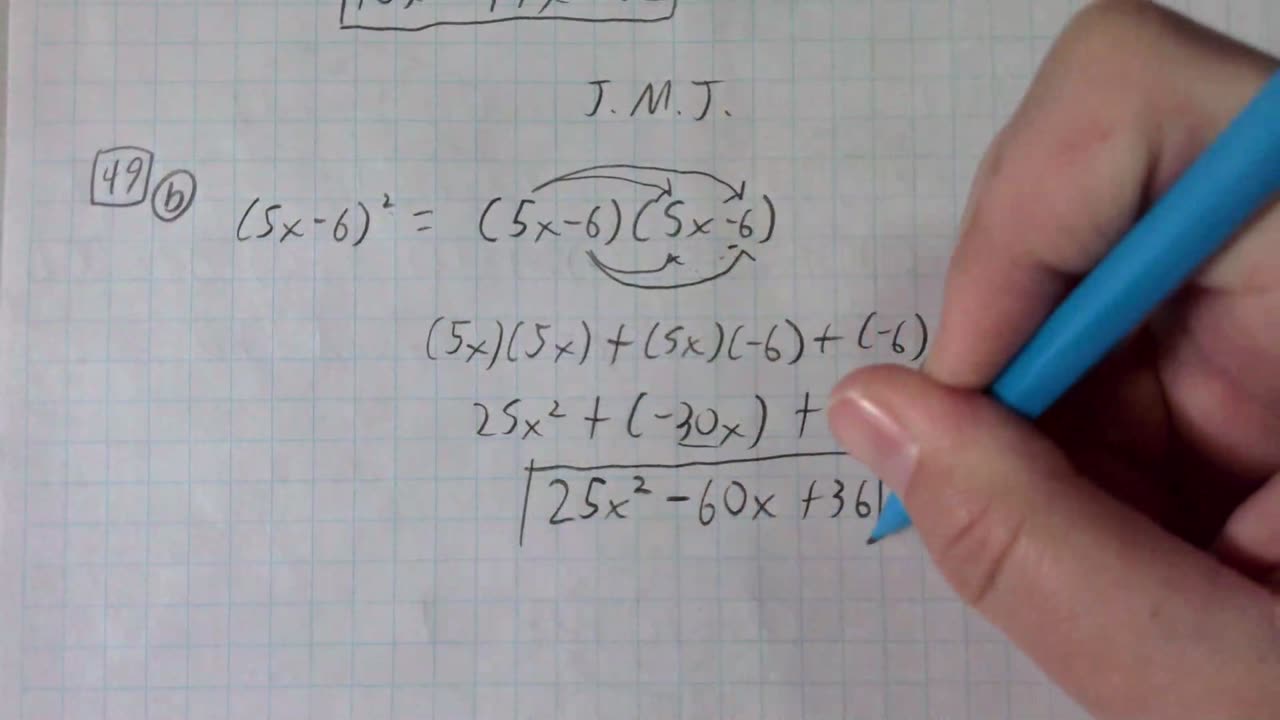 J.M.J.
49 b (5x-6)² = (5x-6)(5x-6)
(5x)(5x) + (5x)(-6) + (-6)
25x² + (-30x) +
25x² - 60x + 36